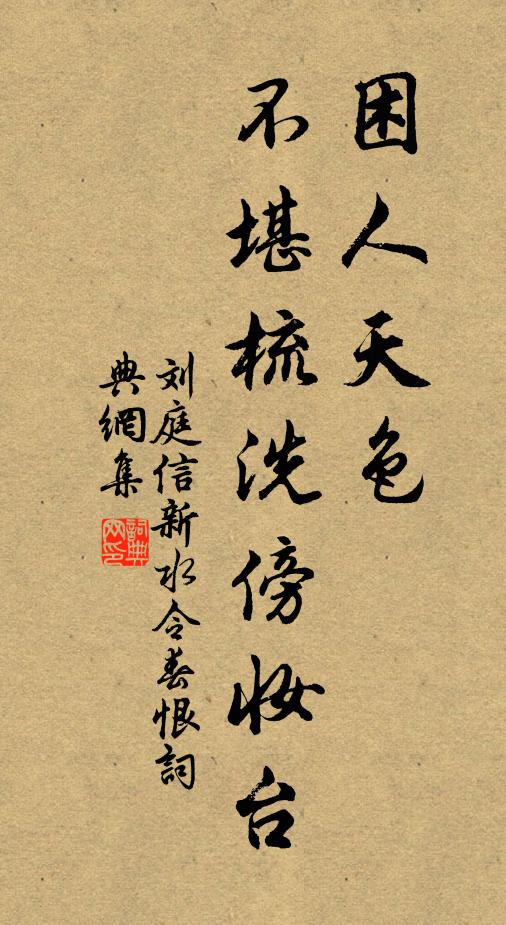 困人天色
不堪梳洗傍妆台
刘庭信新水令春恨詞
典網集
詞典网印